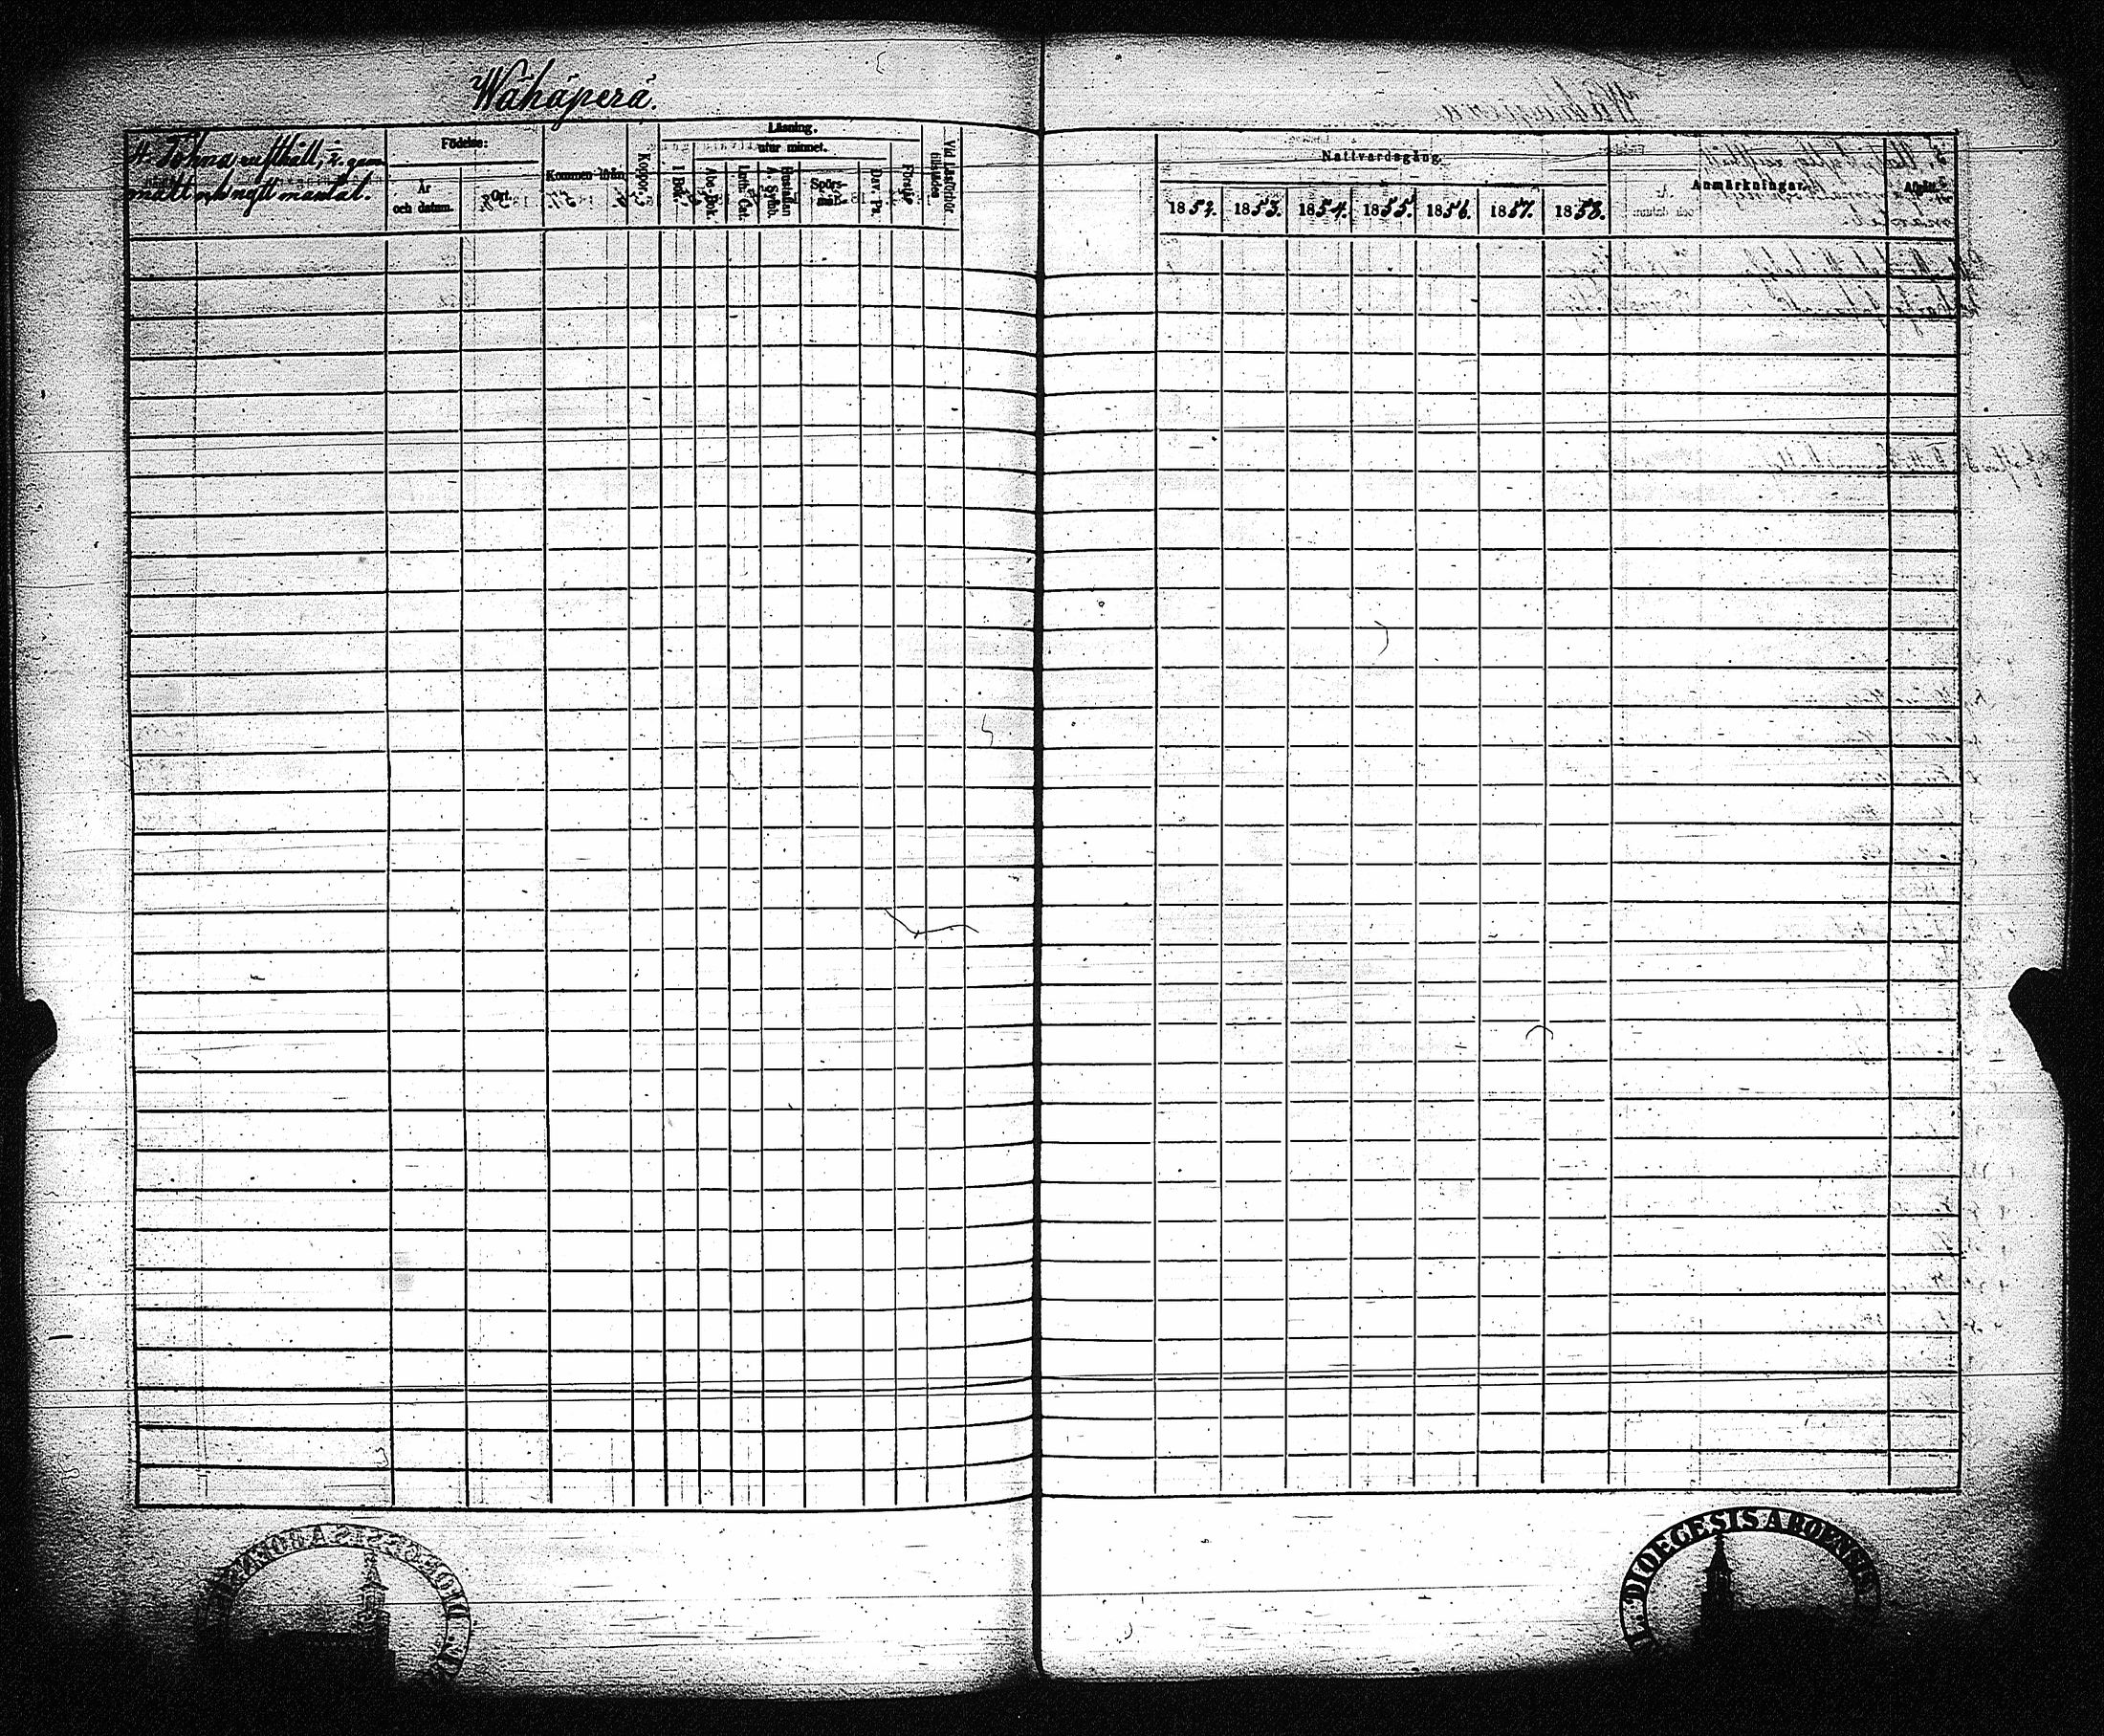 Wähäperä.
4. Tohna rusthåll, 1/2 gam-
malt och nytt mantal.
Födelse:
År
och datum.
Ort.
Kommen ifrån
Koppor.
Läsning.
utur minnet.
I Bok.
Abc-Bok.
Luth. Cat.
Hustaflan
A. Symb.
Spörs-
mål.
Dav. Ps.
Förstår
Vid Läsförhör
tillstädes
Nattvardsgång.
1852.
1853.
1854.
1855.
1856.
1857.
1858.
Anmärkningar.
Afgått.
DIOEGESIS ABOENSIS